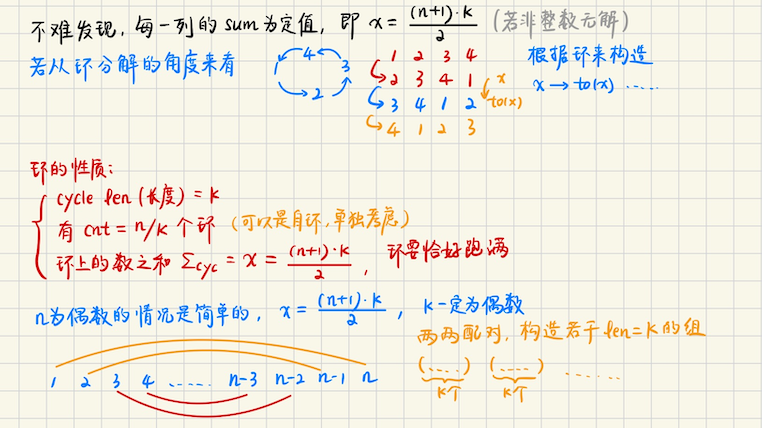 不难发现，每一列的 sum 为定值，即 x = (n+1)·k / 2 (若非整数无解)
若从环分解的角度来看
1 2 3 4
2 3 4 1
3 4 1 2
4 1 2 3
x
to(x)
根据环来构造
x → to(x) ......
环的性质：
cycle len (长度) = k
有 cnt = n/k 个环 (可以是自环，单独考虑)
环上的数之和 Σcyc = x = (n+1)·k / 2 ，环要恰好跑满
n为偶数的情况是简单的，x = (n+1)·k / 2 ，k一定为偶数
两两配对，构造若干 len=k 的组
1 2 3 4 ...... n-3 n-2 n-1 n
(....) (....) ......
k个 k个